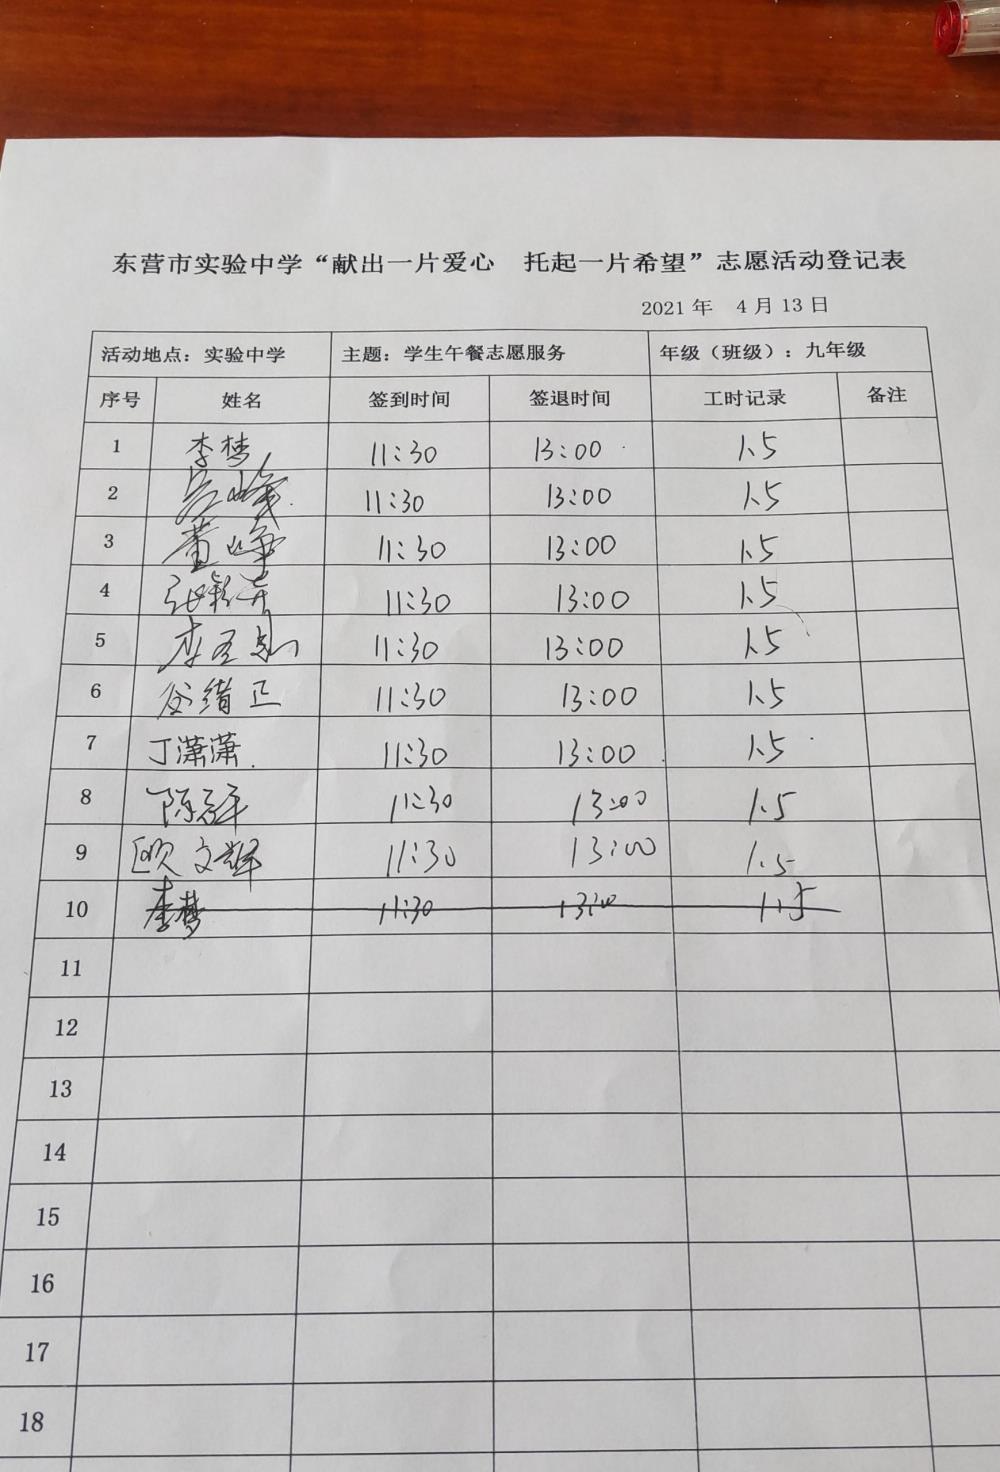 东营市实验中学“献出一片爱心　托起一片希望”志愿活动登记表
2021 年　4 月 13 日
活动地点：实验中学　主题：学生午餐志愿服务　年级（班级）：九年级
序号　姓名　签到时间　签退时间　工时记录　备注
1　李梦　11:30　13:00　1.5
2　11:30　13:00　1.5
3　董峰　11:30　13:00　1.5
4　11:30　13:00　1.5
5　11:30　13:00　1.5
6　谷绪正　11:30　13:00　1.5
7　丁潇潇　11:30　13:00　1.5
8　11:30　13:00　1.5
9　欧文辉　11:30　13:00　1.5
10　李梦　11:30　13:00　1.5
11
12
13
14
15
16
17
18